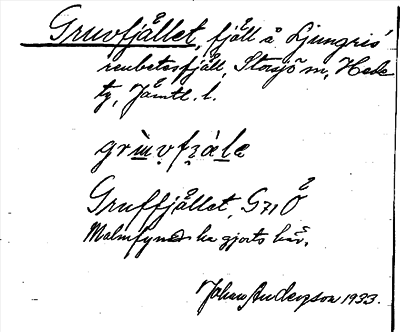 Gruvfjället, fjäll å Ljungris
renbetesfjäll, Storsjö sn, Hede
tg, Jämtl. l.
Gruffjället, G71 Ö
Malmfynd ha gjorts här.
Johan Anderzson 1933.